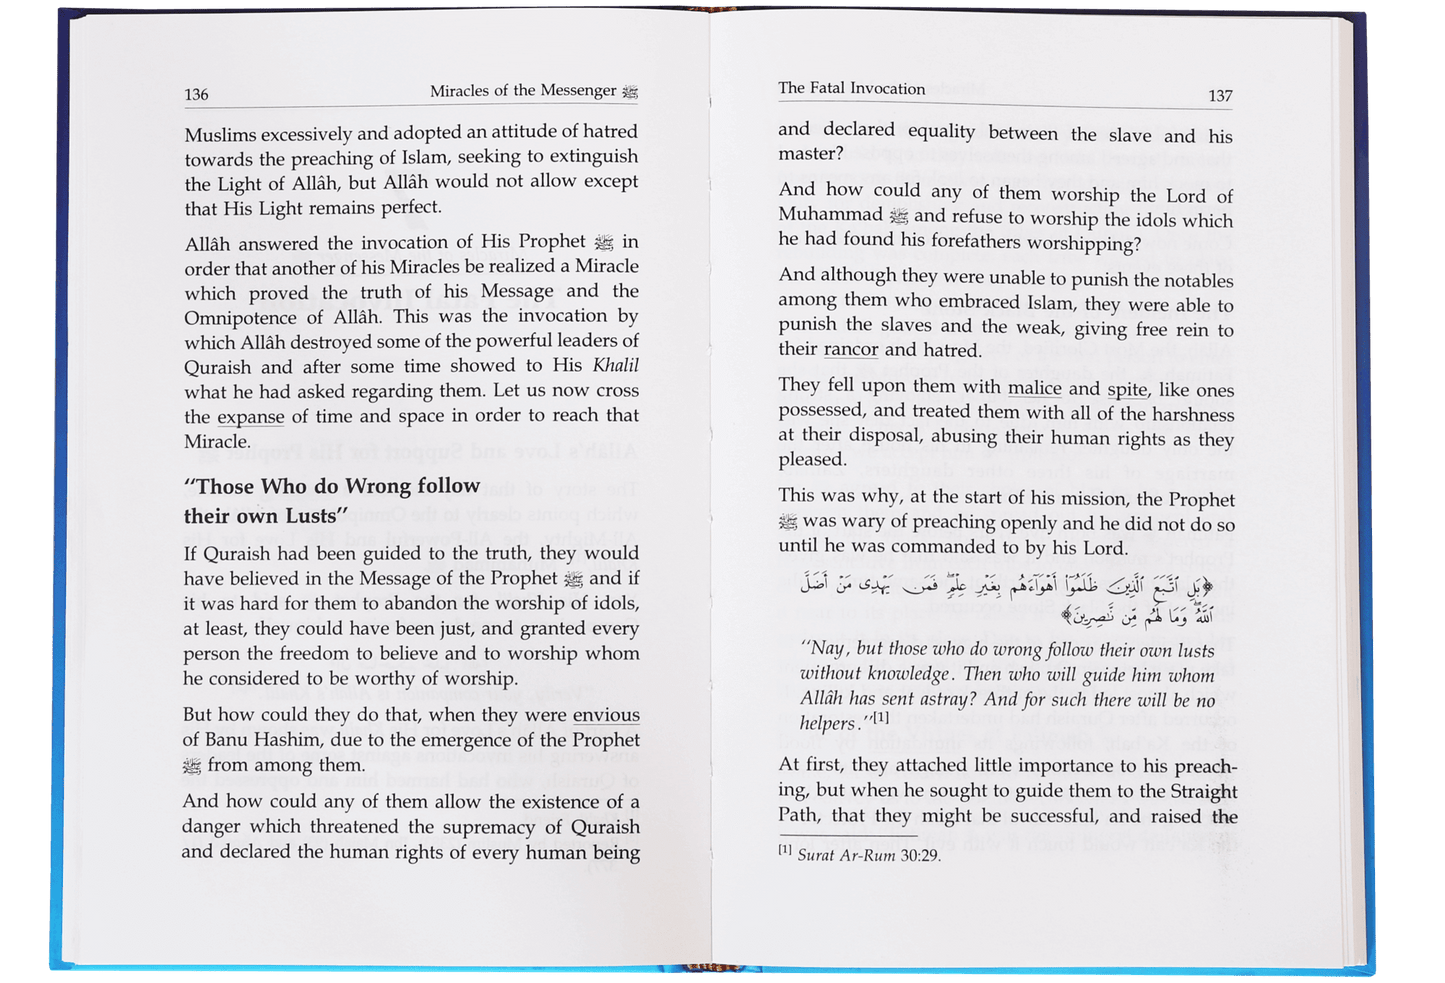 136 Miracles of the Messenger ﷺ
Muslims excessively and adopted an attitude of hatred
towards the preaching of Islam, seeking to extinguish
the Light of Allâh, but Allâh would not allow except
that His Light remains perfect.
Allâh answered the invocation of His Prophet ﷺ in
order that another of his Miracles be realized a Miracle
which proved the truth of his Message and the
Omnipotence of Allâh. This was the invocation by
which Allâh destroyed some of the powerful leaders of
Quraish and after some time showed to His Khalil
what he had asked regarding them. Let us now cross
the expanse of time and space in order to reach that
Miracle.
“Those Who do Wrong follow
their own Lusts”
If Quraish had been guided to the truth, they would
have believed in the Message of the Prophet ﷺ and if
it was hard for them to abandon the worship of idols,
at least, they could have been just, and granted every
person the freedom to believe and to worship whom
he considered to be worthy of worship.
But how could they do that, when they were envious
of Banu Hashim, due to the emergence of the Prophet
ﷺ from among them.
And how could any of them allow the existence of a
danger which threatened the supremacy of Quraish
and declared the human rights of every human being
The Fatal Invocation 137
and declared equality between the slave and his
master?
And how could any of them worship the Lord of
Muhammad ﷺ and refuse to worship the idols which
he had found his forefathers worshipping?
And although they were unable to punish the notables
among them who embraced Islam, they were able to
punish the slaves and the weak, giving free rein to
their rancor and hatred.
They fell upon them with malice and spite, like ones
possessed, and treated them with all of the harshness
at their disposal, abusing their human rights as they
pleased.
This was why, at the start of his mission, the Prophet
ﷺ was wary of preaching openly and he did not do so
until he was commanded to by his Lord.
﴿بَلِ ٱتَّبَعَ ٱلَّذِينَ ظَلَمُوٓا۟ أَهْوَآءَهُم بِغَيْرِ عِلْمٍۢ ۖ فَمَن يَهْدِى مَنْ أَضَلَّ
ٱللَّهُ ۖ وَمَا لَهُم مِّن نَّـٰصِرِينَ﴾
“Nay, but those who do wrong follow their own lusts
without knowledge. Then who will guide him whom
Allâh has sent astray? And for such there will be no
helpers.”[1]
At first, they attached little importance to his preach-
ing, but when he sought to guide them to the Straight
Path, that they might be successful, and raised the
[1] Surat Ar-Rum 30:29.